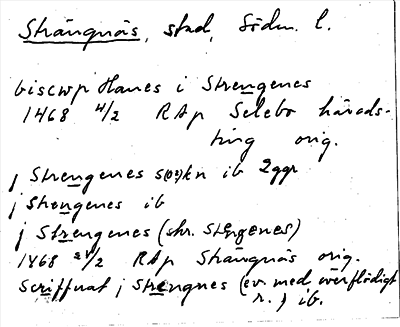 Strängnäs, stad, Södm. l.
biscwp Hanes i Strengenes
1468 4/2 RAp Selebo härads-
ting orig.
j Strengenes s(os)kn ib 2ggr
j Stengenes ib
j Strengenes (skr. Stergenes)
1468 21/2 RAp Strängnäs orig.
Scriffuat j Strengnes (ev. med överflödigt
r.) ib.